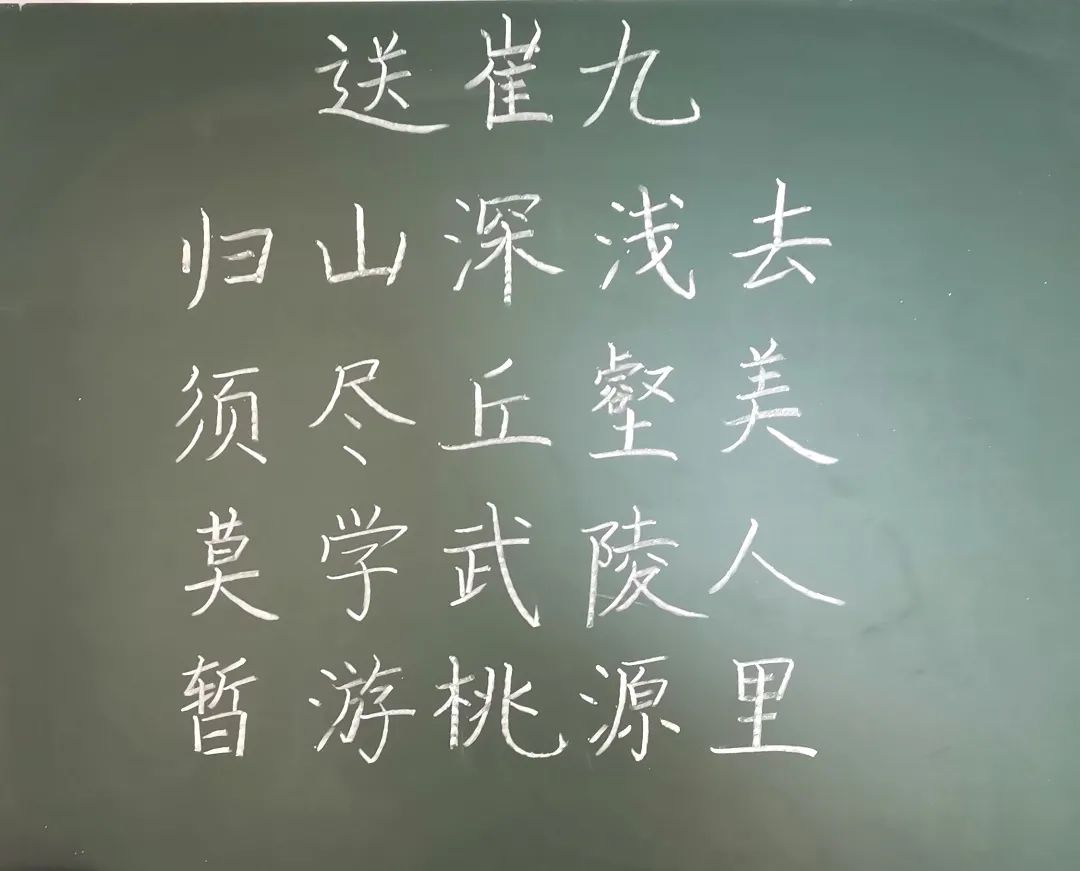 送崔九
归山深浅去
须尽丘壑美
莫学武陵人
暂游桃源里